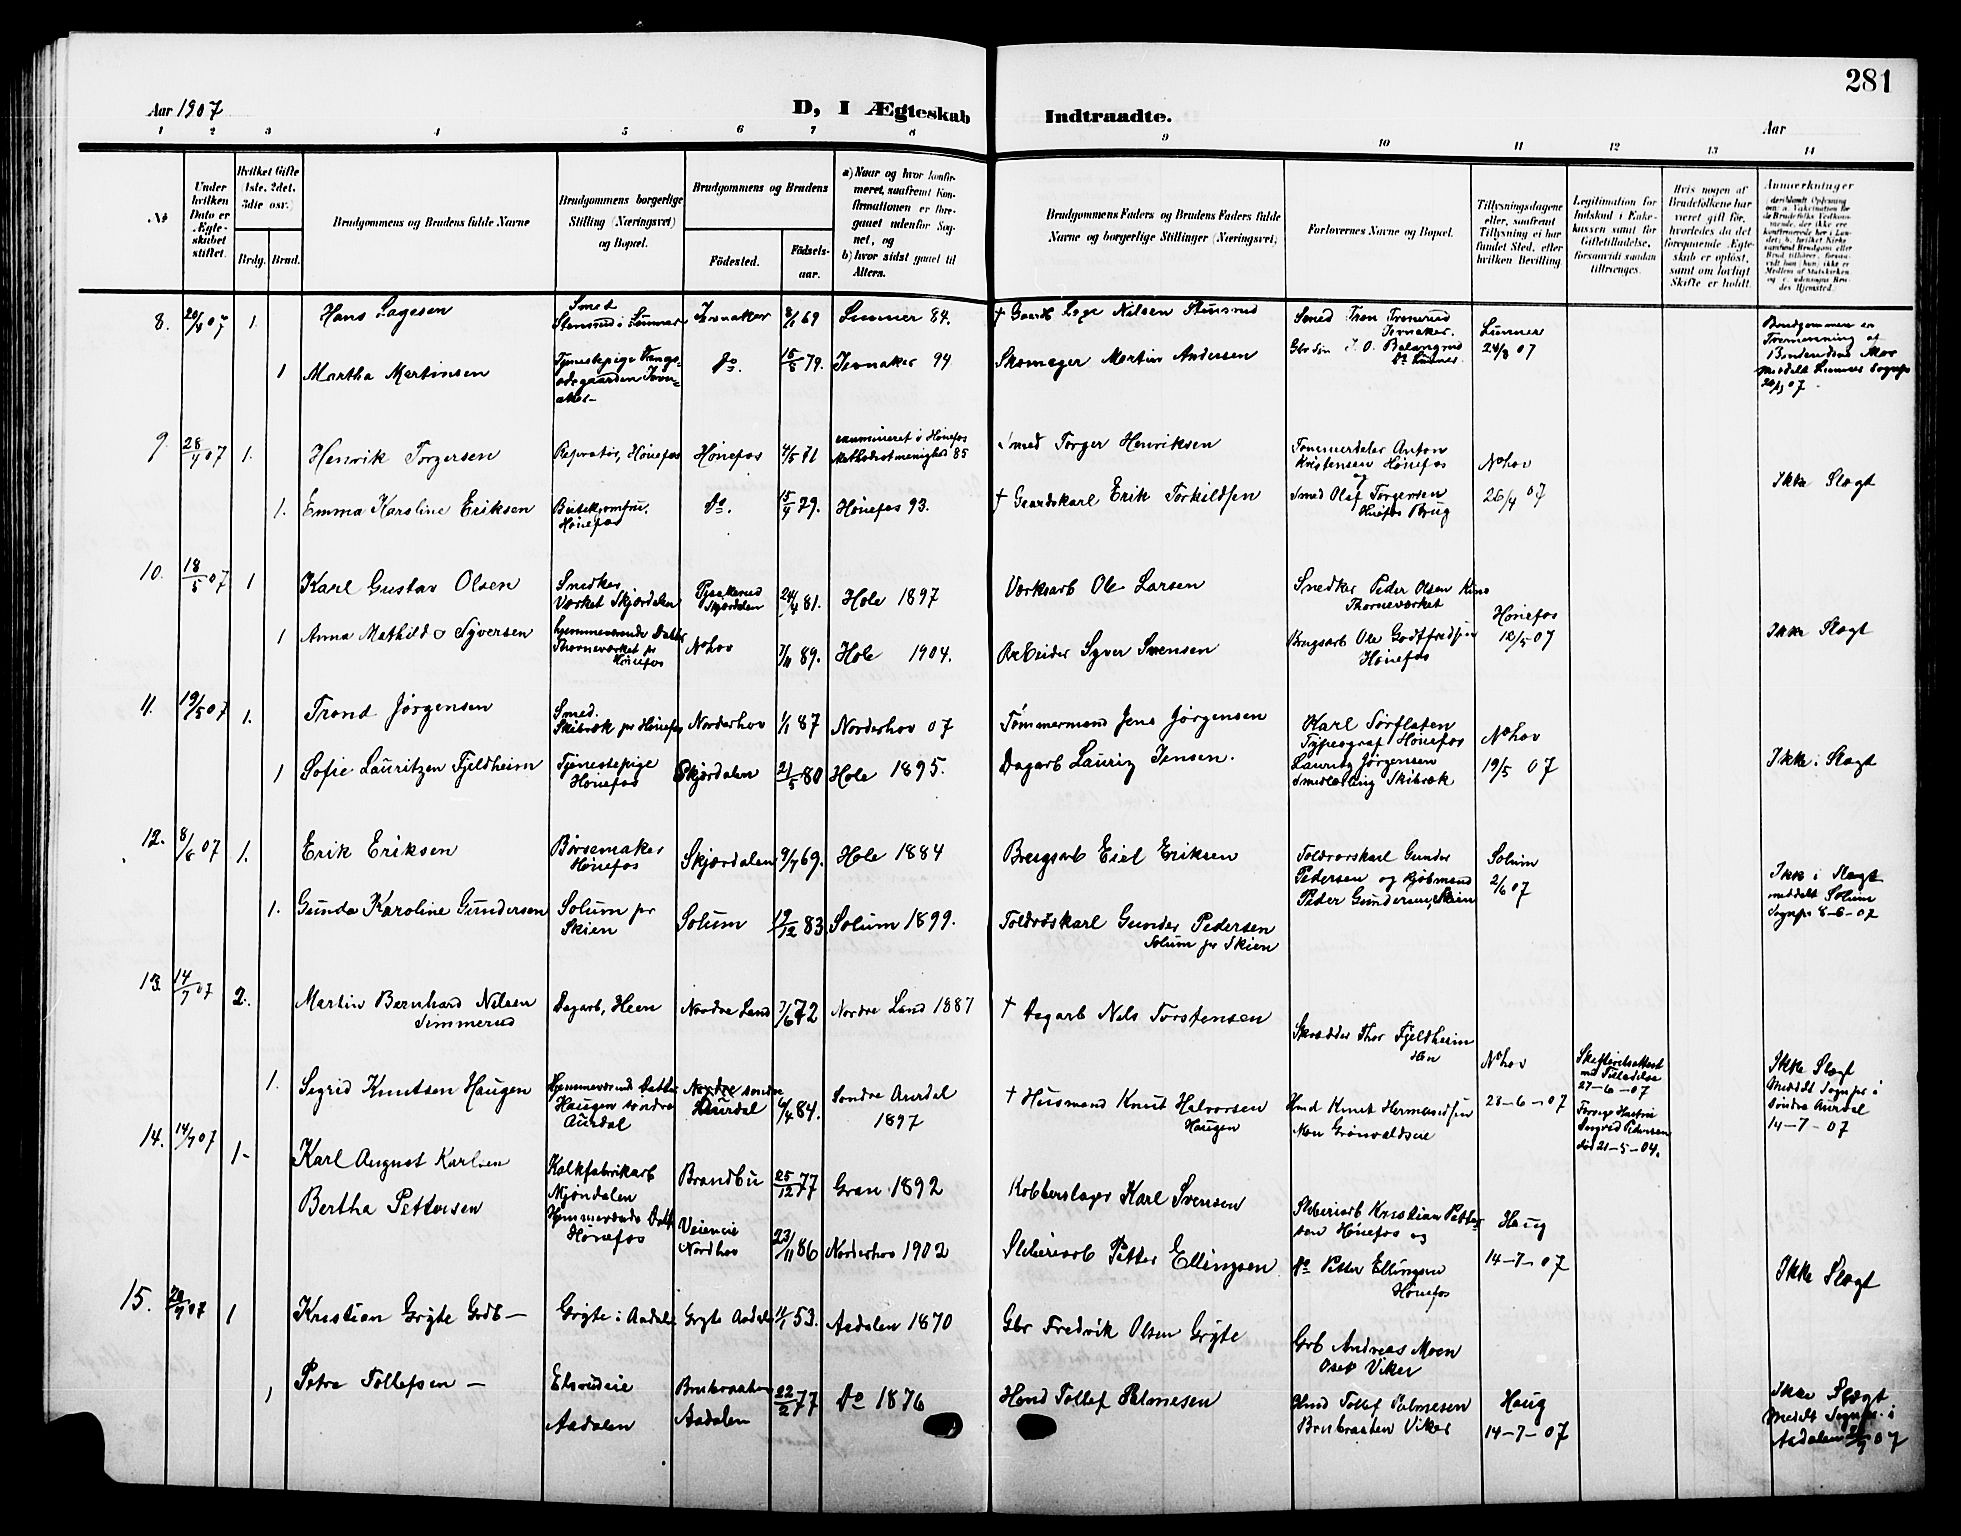 281
Aar 1907
D, I Ægteskab Indtraadte.
Aar
1 2 3 4 5 6 7 8 9 10 11 12 13 14
No
Under hvilken Dato er Ægteskabet stiftet.
Hvilket Gifte (1ste, 2det, 3die osv.)
Brdg. Brud.
Brudgommens og Brudens fulde Navne
Brudgommens borgerlige Stilling (Næringsvei) og Bopæl.
Brudgommens og Brudens
Fødested.
Fødselsaar.
a) Naar og hvor konfirmeret, saafremt Konfirmationen er foregaaet udenfor Sognet, og
b) hvor sidst gaaet til Alters.
Brudgommens Faders og Brudens Faders fulde Navne og borgerlige Stillinger (Næringsvei)
Forlovernes Navne og Bopæl.
Tillysningsdagene eller, saafremt Tillysning ei har fundet Sted, efter hvilken Bevilling.
Legitimation for Indskud i Enkekassen samt for Giftetilladelse, forsaavidt saadan tiltrænges.
Hvis nogen af Brudefolkene har været gift før, hvorledes da det foregaaende Ægteskab er opløst, samt om lovligt Skifte er holdt.
Anmærkninger
8. 20/4 07 1. Hans Lagesen
Smed Stensrud i Lunner
Jevnaker 8/1 69
Lunner 84.
† Gaardb Lage Nilsen Stensrud
Smed Tron Tronrud Jevnaker.
J. O. Do Lunner
Lunner 24/3 07
Brudgommen er Tremenning af Brudens Mor
Meddelt Lunner Sognepr
1 Martha Martinsen
Tjenestepige Jevnaker
do. 15/5 79. Jevnaker 94
Skomager Martin Andersen
9. 28/4 07 1. Henrik Torgersen
Reparatør, Hønefos
Hønefos 4/5 71
examineret i Hønefos Methodistmenighed 85
Smed Torger Henriksen
Tømmerdeler Anton Kristensen Hønefos
og
Nohov
Ikke Slegt
1. Emma Karoline Eriksen
Butikjomfru. Hønefos
do. 15/9 79. Hønefos 93.
† Gaardskarl Erik Torkildsen
Smed Olaf Torgersen Hønefos Brug
26/4 07
10. 18/5 07 1 Karl Gustav Olsen
Snedker Værket Skjærdalen
Skjærdalen 24/4 81. Hole 1897
Værksarb Ole Larsen
Snedker Peder Olsen Thorneværket
Hønefos 12/5 07
Ikke Slegt
1 Anna Mathilde Syversen
hjemmeværende Datter Thorneværket pr Hønefos
Nohov 7/11 89. Hole 1904.
Arbeider Syver Svensen
Brugsarb Ole Godtfredsen Hønefos
11. 19/5 07 1. Trond Jørgensen
Smed. Skibræk pr Hønefos
Norderhov 1/1 87 Norderhov 07
Tømmermand Jens Jørgensen
Karl Sørflaten Typograf Hønefos
Nohov 19/5 07
Ikke i Slegt
1 Sofie Lauritzen Fjeldheim
Tjenestepige Hønefos
Skjærdalen 21/5 80 Hole 1895.
Dagarb Lauriz Jensen.
Lauritz Jørgensen Smedlærling Skibræk
12. 8/6 07 1. Erik Eriksen
Børsemaker Hønefos
Skjærdalen 9/7 69. Hole 1884
Brugsarb Eiel Eriksen
Toldrorskarl Gunder Pedersen og Kjøbmand Peder Gundersen, Skien
Solum 2/6 07
Ikke i Slegt meddelt Solum Sognepr 8-6-07
1. Gunda Karoline Gundersen
Solum pr Skien
Solum 19/12 83 Solum 1899.
Toldroskarl Gunder Pedersen Solum pr Skien
13. 14/7 07 2. Martin Bernhard Nilsen Simmerud
Dagarb, Heen
Nordre Land 7/6 72 Nordre Land 1887
† Dagarb Nils Torstensen
Skrædder Thor Fjeldheim
Nohov
Skifteretsattest med Tilladelse 27-6-07
Ikke Slegt
Meddelt Sognepr i Søndre Aurdal 14-7-07
1. Sigrid Knutsen Haugen
Hjemmeværende Datter Haugen søndre Aurdal
søndre Aurdal 6/4 84. Søndre Aurdal 1897
† Husmand Knut Halvorsen Haugen
Hmd Knut Hermandsen
28-6-07
Forrige Hustru Ingrid Pedersen død 21-5-04.
14. 14/7 07 1- Karl August Karlsen
Kalkfabrikarb Mjøndalen
Brandbu 25/12 77 Gran 1892
Kobberslager Karl Svensen
Sliberiarb Kristian Pettersen Hønefos og
Haug 14-7-07
Ikke Slegt
Bertha Pettersen
Hjemmeværende Datt Hønefos
Veieneie Nordhov 23/11 86 Norderhov 1902
Sliberiarb Petter Ellingsen
Do Petter Ellingsen Hønefos
15. 1 Kristian Gryte Grdb-
Gryte i Aadalen
Gryte Aadalen 11/1 53. Aadalen 1870
Gbr Fredrik Olsen Gryte
Grb Andreas Moen Viker
Haug 14-7-07
Ikke Slegt
Meddt Sognepr. i Aadalen
1 Petra Tollefsen -
Elsrudeie Aadalen
Brubraaten Aadalen 22/2 77 Do 1876
Hmd Tollef Palmesen
Hmd Tollef Palmesen Brubraaten Viker